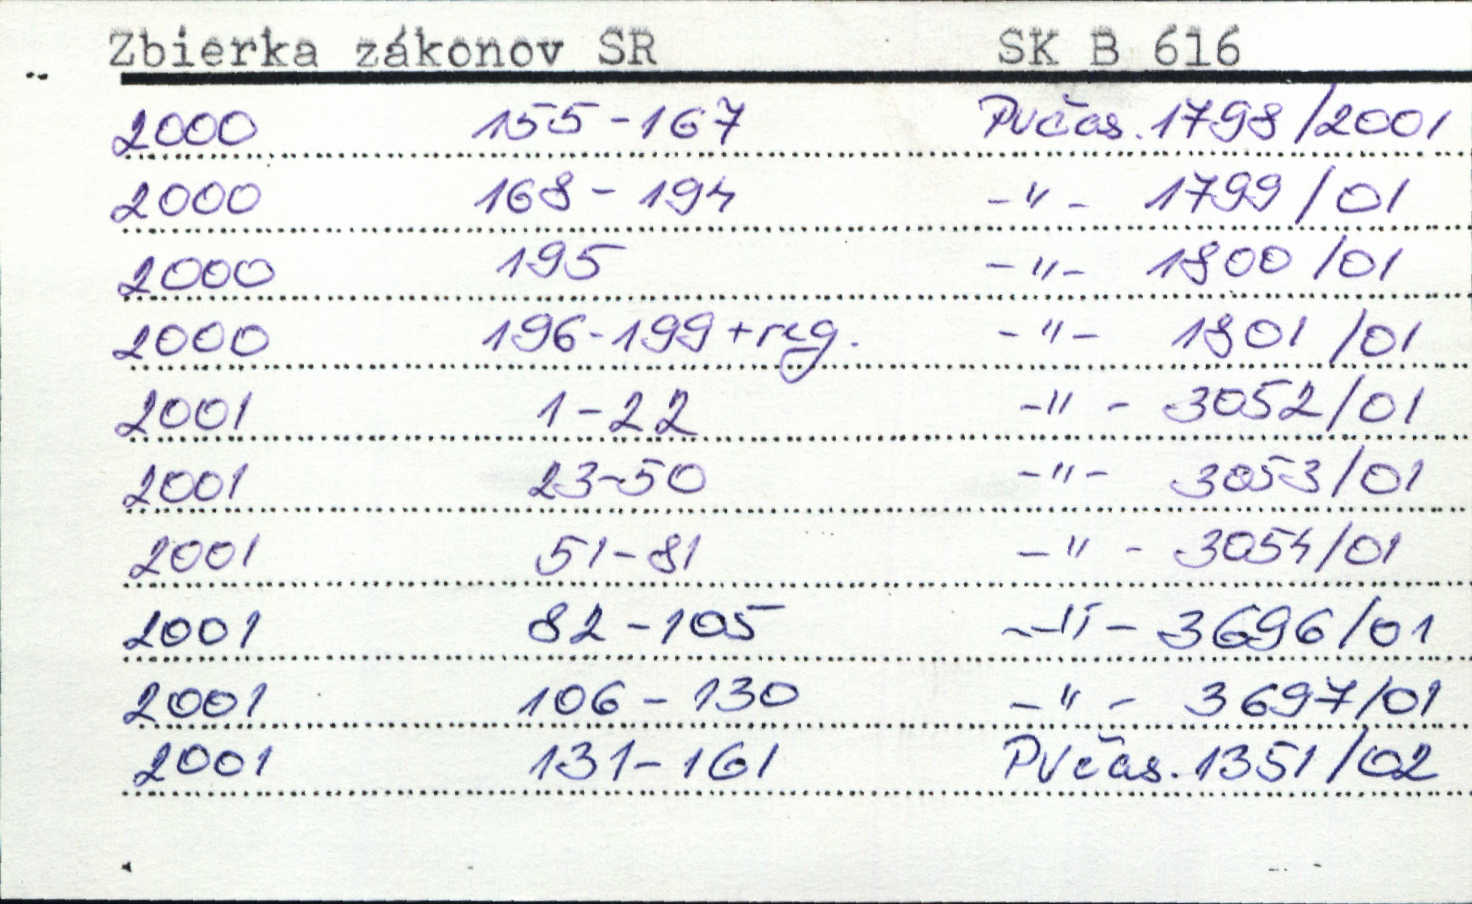 Zbierka zákonov SR SK B 616
2000 155-167 PVčas. 1798/2001
2000 168-194 -"- 1799/01
2000 195 -"- 1800/01
2000 196-199+reg. -"- 1801/01
2001 1-22 -"- 3052/01
2001 23-50 -"- 3053/01
2001 51-81 -"- 3054/01
2001 82-105 -"- 3696/01
2001 106-130 -"- 3697/01
2001 131-161 PVčas. 1351/02